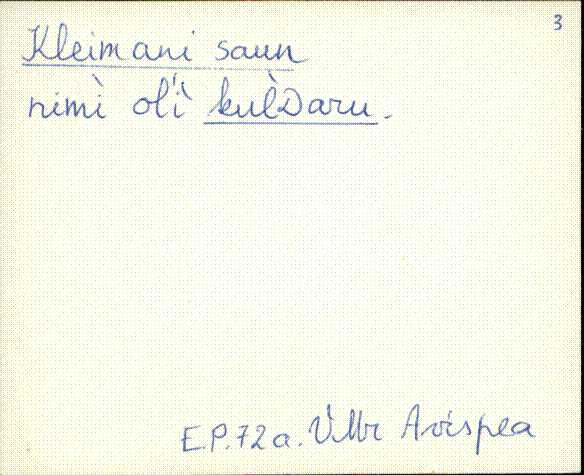 3
Kleimani saun
nimì ol'ì kul̀Daru.
EP. 72a. VMr Avispea